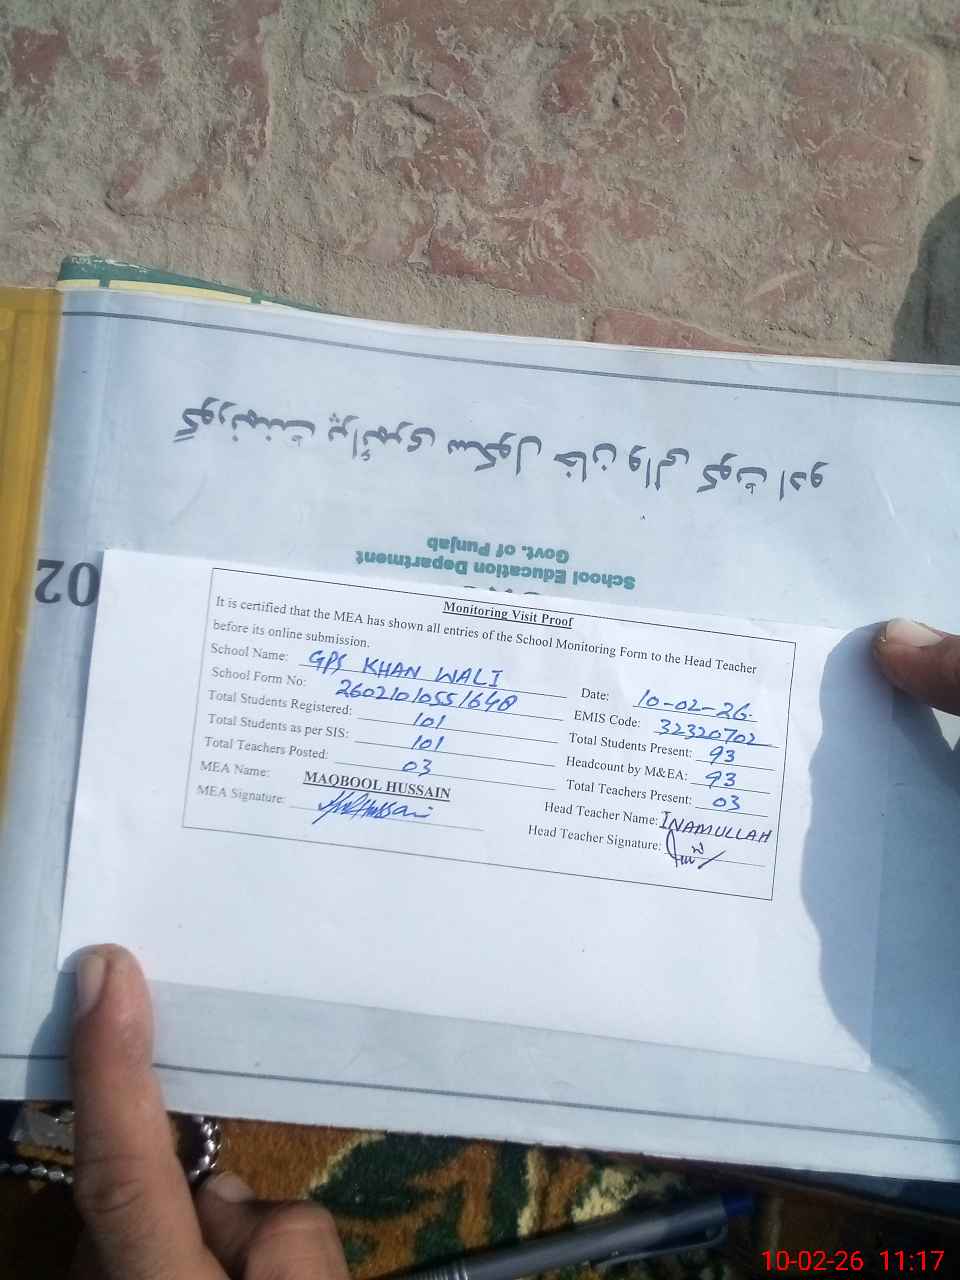 گورنمنٹ پرائمری سکول خان والی کوٹ ادو
School Education Department
Govt. of Punjab
02
Monitoring Visit Proof
It is certified that the MEA has shown all entries of the School Monitoring Form to the Head Teacher
before its online submission.
School Name: GPS KHAN WALI Date: 10-02-26.
School Form No: 26021010551648 EMIS Code: 32320702
Total Students Registered: 101 Total Students Present: 93
Total Students as per SIS: 101 Headcount by M&EA: 93
Total Teachers Posted: 03 Total Teachers Present: 03
MEA Name: MAQBOOL HUSSAIN Head Teacher Name: INAMULLAH
MEA Signature: Head Teacher Signature:
10-02-26 11:17